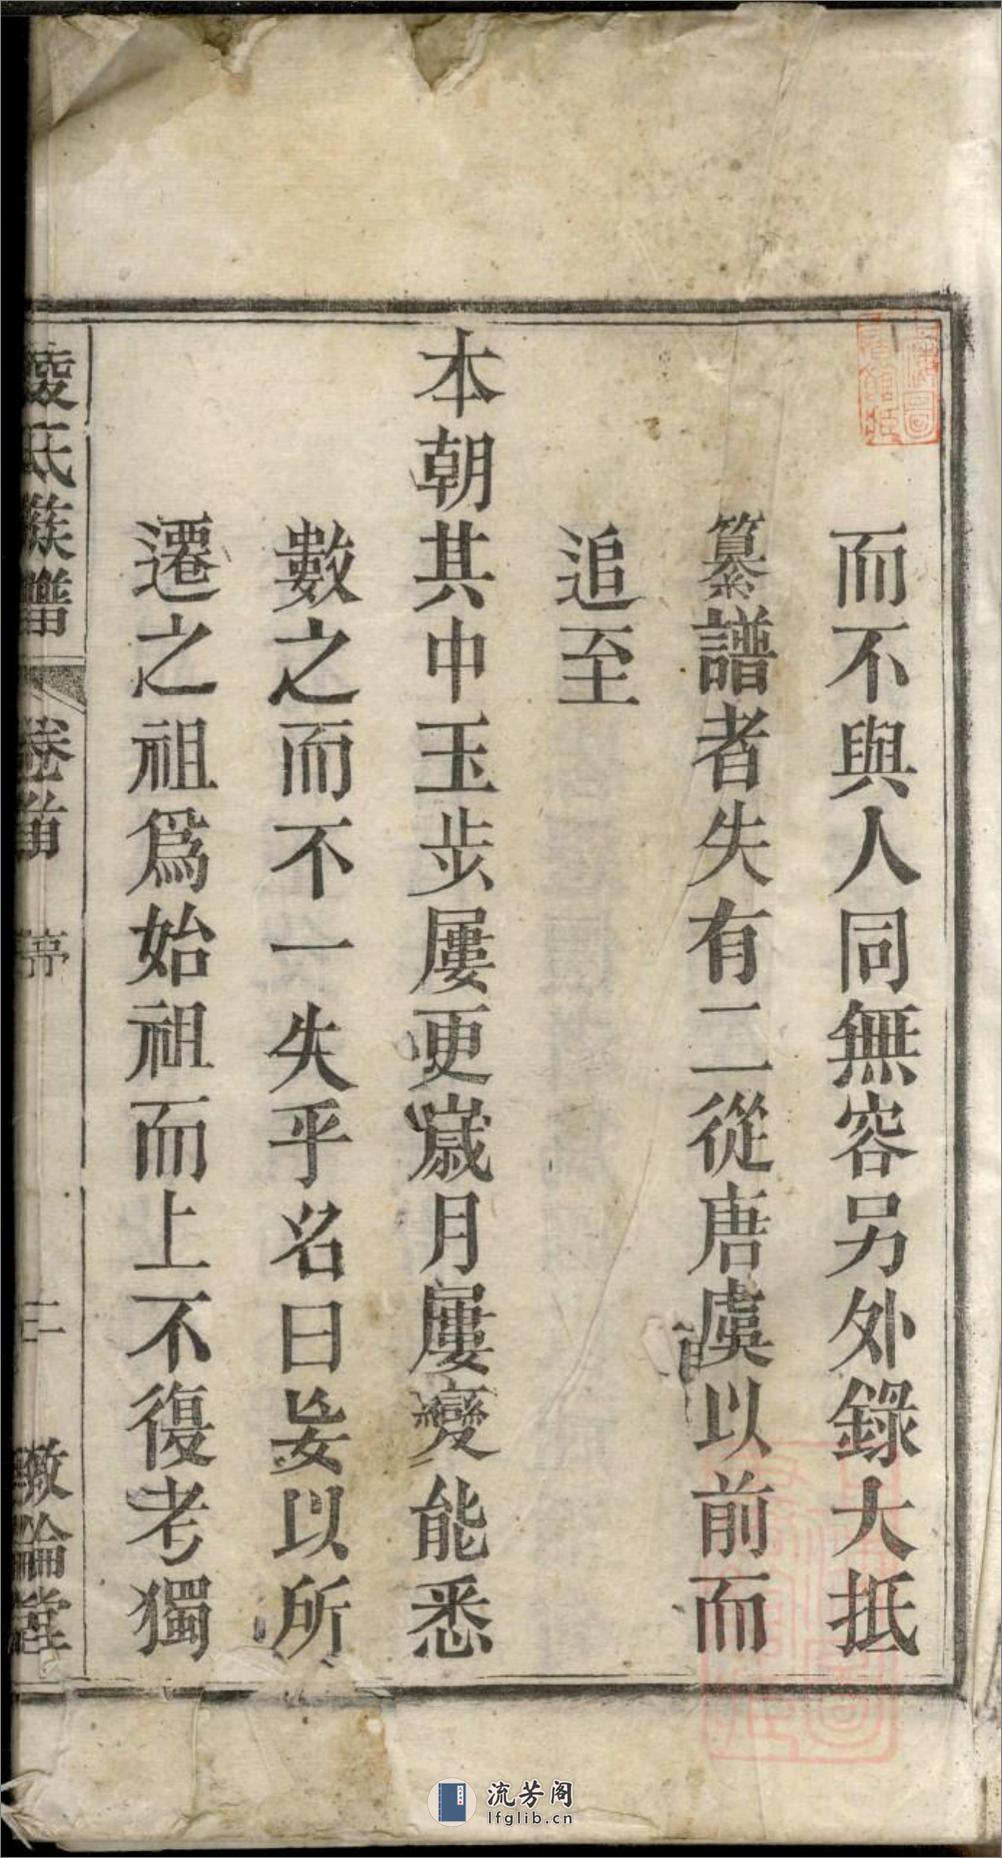 而不與人同無容另外錄大抵
纂譜者失有二從唐虞以前而
追至
本朝其中玉步屢更嵗月屢變能悉
數之而不一失乎名曰妄以所
遷之祖爲始祖而上不復考獨
氏族譜
卷首
序
三
敦倫堂
流芳阁
lfglib.cn